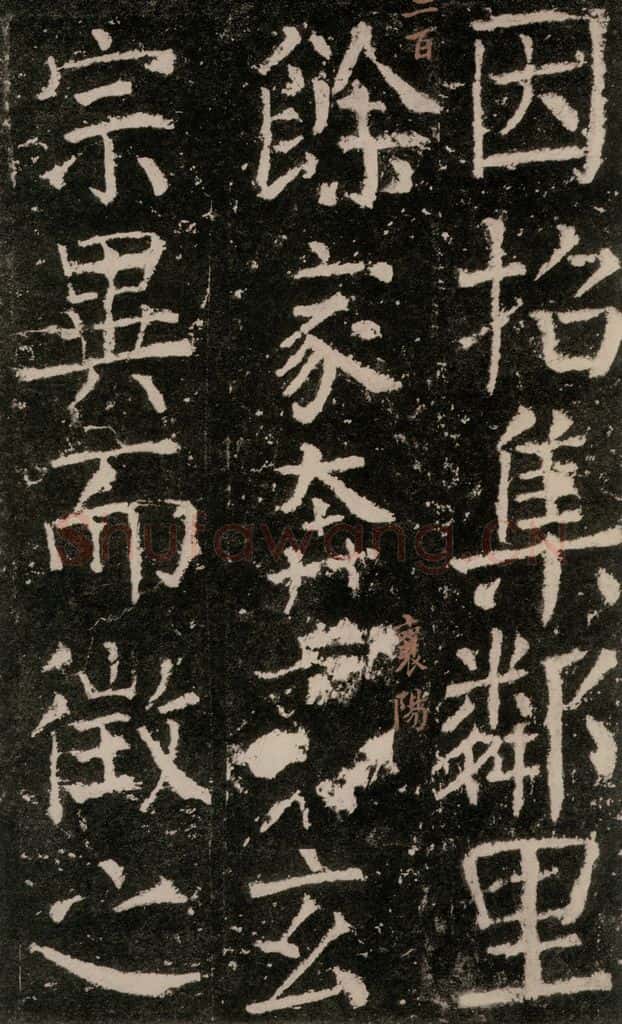 因招集鄰里
二百
襄陽
餘家奔玄
宗異而徵之
Shufawang.CN